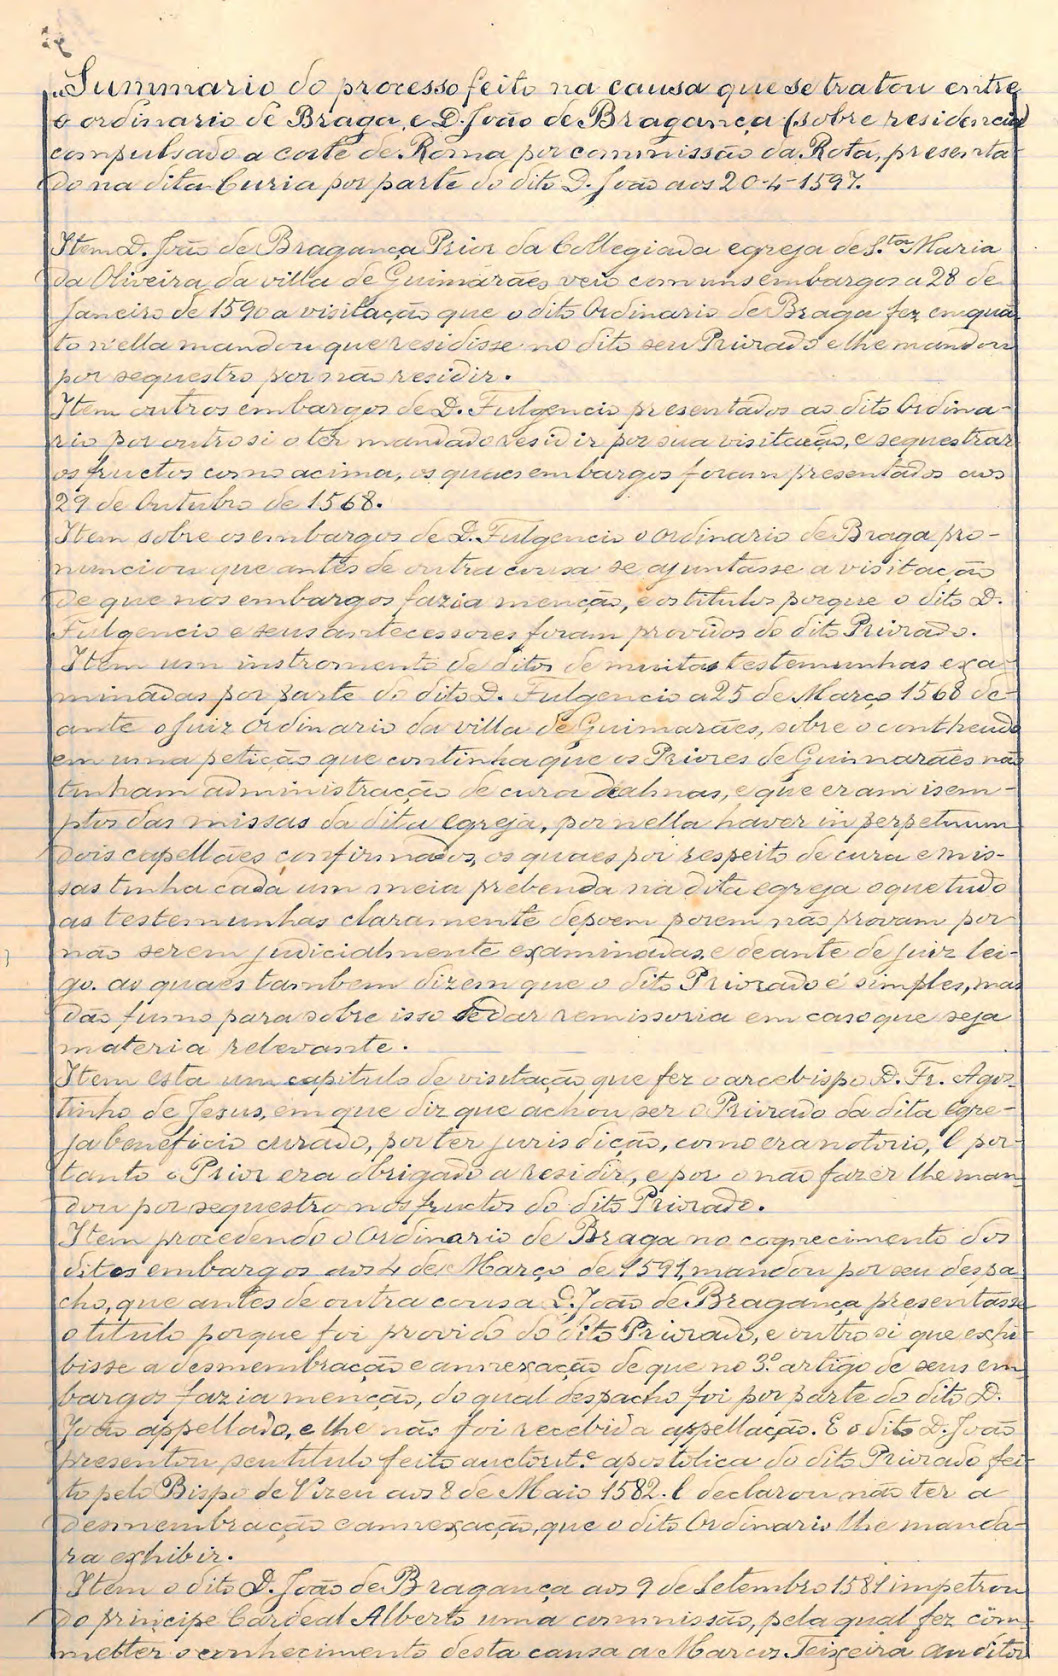 "Summario do processo feito na causa que se tratou entre
o ordinario de Braga, e D. João de Bragança (sobre residencia)
compulsado a corte de Roma por commissão da Rota, presenta-
do na dita Curia por parte do dito D. João aos 20-4-1597.
Item D. João de Bragança Prior da Collegiada egreja de S.ta Maria
da Oliveira da villa de Guimarães veio com uns embargos a 28 de
Janeiro de 1590 a visitação que o dito Ordinario de Braga fez emquã-
to n'ella mandou que residisse no dito seu Priorado e lhe mandou
por sequestro por não residir.
Item outros embargos de D. Fulgencio presentados ao dito Ordina-
rio por outrosi o ter mandado residir por sua visitação, e sequestrar
os fructos como acima, os quaes embargos foram presentados aos
29 de Outubro de 1568.
Item sobre os embargos de D. Fulgencio o Ordinario de Braga pro-
nunciou que antes de outra cousa se ajuntasse a visitação
de que nos embargos fazia menção, e os titulos porque o dito D.
Fulgencio e seus antecessores foram providos do dito Priorado.
Item um instromento de ditos de muitas testemunhas exa-
minadas por parte do dito D. Fulgencio a 25 de Março 1568 de-
ante o Juiz Ordinario da villa de Guimarães, sobre o contheudo
em uma petição que continha que os Priores de Guimarães não
tinham administração de cura dealmas, e que eram isem-
ptos das missas da dita egreja, por n'ella haver in perpetuum
dois capellães confirmados, os quaes por respeito de cura e mis-
sas tinha cada um meia prebenda na dita egreja o que tudo
as testemunhas claramente depoem porem não provam por
não serem judicialmente examinadas, e deante de juiz lei-
go. as quaes tambem dizem que o dito Priorado é simples, mas
dão fumo para sobre isso se dar remissoria em caso que seja
materia relevante.
Item esta um capitulo de visitação que fez o arcebispo D. Fr. Agos-
tinho de Jesus, em que diz que achou ser o Priorado da dita egre-
ja beneficio curado, por ter jurisdição, como era notorio, e por-
tanto o Prior era obrigado a residir, e por o não fazer lhe man-
dou por sequestro nos fructos do dito Priorado.
Item procedendo o Ordinario de Braga no cognecimento dos
ditos embargos aos 4 de Março de 1591, mandou por seu despa-
cho, que antes de outra cousa D. João de Bragança presentasse
o titulo porque foi provido do dito Priorado, e outro si que exhi-
bisse a desmembração e annexação de que no 3.º artigo de seus em-
bargos fazia menção, do qual despacho foi por parte do dito D.
João appellado, e lhe não foi recebida appellação. E o dito D. João
presentou seu titulo feito auctorit.e apostolica do dito Priorado fei-
to pelo Bispo de Vizeu aos 8 de Maio 1582. E declarou não ter a
desmembração e annexação, que o dito Ordinario lhe manda-
ra exhibir.
Item o dito D. João de Bragança aos 9 de Setembro 1581 impetrou
do principe Cardeal Alberto uma commissão, pela qual fez com-
metter o conhecimento desta causa a Marcos Teixeira auditor